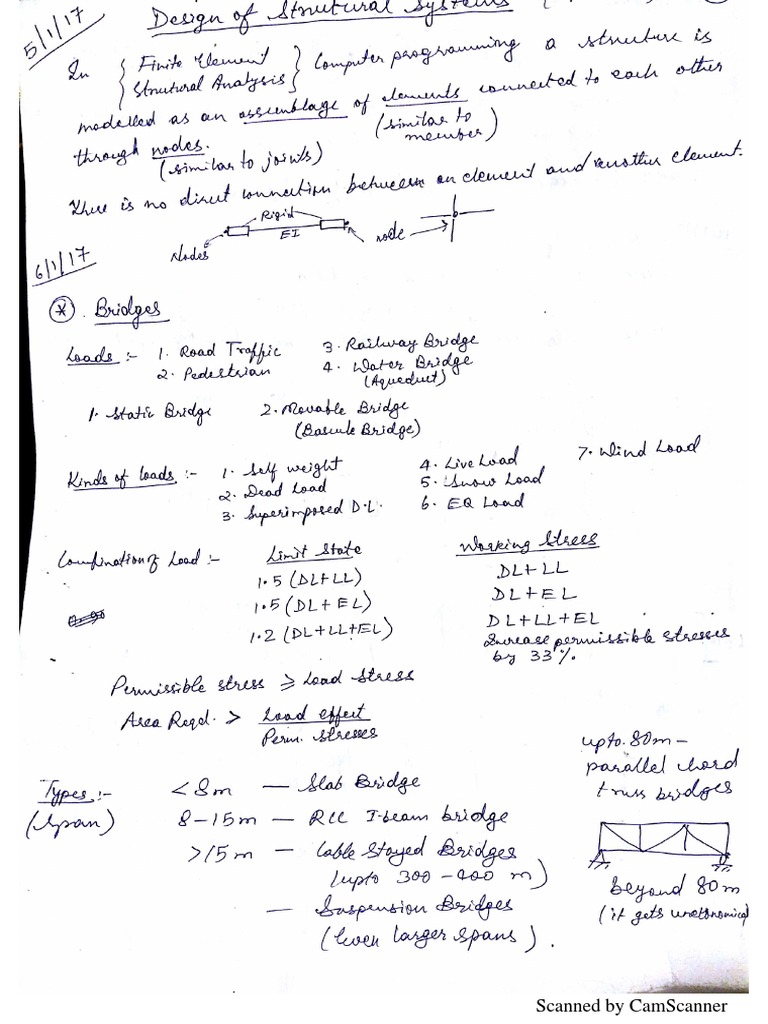 5/1/17
Design of Structural Systems
In { Finite Element Structural Analysis } Computer programming a structure is
modelled as an assemblage of elements connected to each other
(similar to member)
through nodes.
(similar to joints)
There is no direct connection between an element and another element.
Rigid
EI
Nodes
node
6/1/17
* Bridges
Loads :- 1. Road Traffic 3. Railway Bridge
2. Pedestrian 4. Water Bridge
(Aqueduct)
1. Static Bridge 2. Movable Bridge
(Bascule Bridge)
Kinds of loads :- 1. Self weight 4. Live Load 7. Wind Load
2. Dead Load 5. Snow Load
3. Superimposed D.L. 6. EQ Load
Combination of Load :- Limit State Working Stress
1.5 (DL+LL) DL+LL
1.5 (DL+EL) DL+EL
1.2 (DL+LL+EL) DL+LL+EL
Increase permissible stresses
by 33%.
Permissible stress ≥ Load Stress
Area Reqd. > Load effect
Perm. stresses
Types :- < 8m — Slab Bridge
(Span) 8-15m — RCC I-beam bridge
>15m — Cable Stayed Bridges
(upto 300-400 m)
— Suspension Bridges
(Even larger spans).
upto 80m —
parallel chord
truss bridges
beyond 80m
(it gets uneconomical)
Scanned by CamScanner